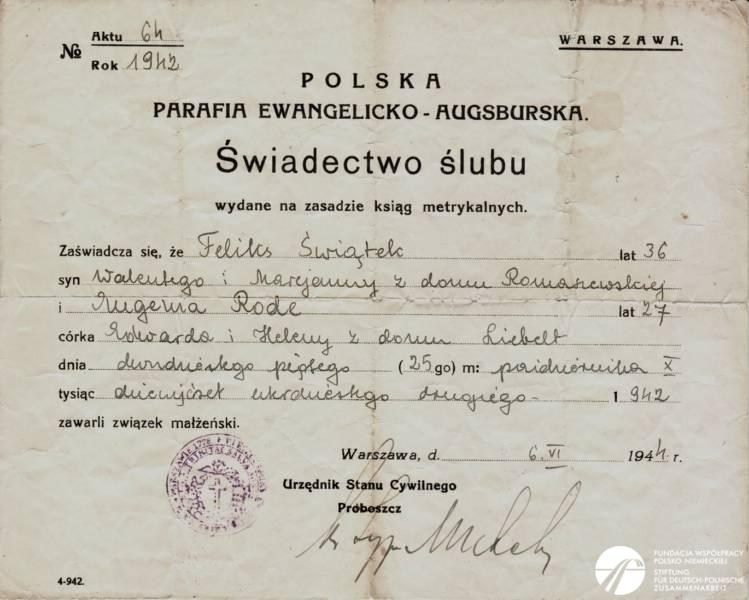 № Aktu 64
Rok 1942
WARSZAWA.
POLSKA
PARAFIA EWANGELICKO-AUGSBURSKA.
Świadectwo ślubu
wydane na zasadzie ksiąg metrykalnych.
Zaświadcza się, że Feliks Świątek lat 36
syn Walentego i Marjanny z domu Romaszewskiej
i Eugenia Rode lat 27
córka Edwarda i Heleny z domu Liebelt
dnia dwudziestego piątego (25 go) m: października X
tysiąc dziewięćset czterdziestego drugiego - 1942
zawarli związek małżeński.
Warszawa, d. 6. VI 1944 r.
Urzędnik Stanu Cywilnego
Proboszcz
4-942.
FUNDACJA WSPÓŁPRACY
POLSKO-NIEMIECKIEJ
STIFTUNG
FÜR DEUTSCH-POLNISCHE
ZUSAMMENARBEIT